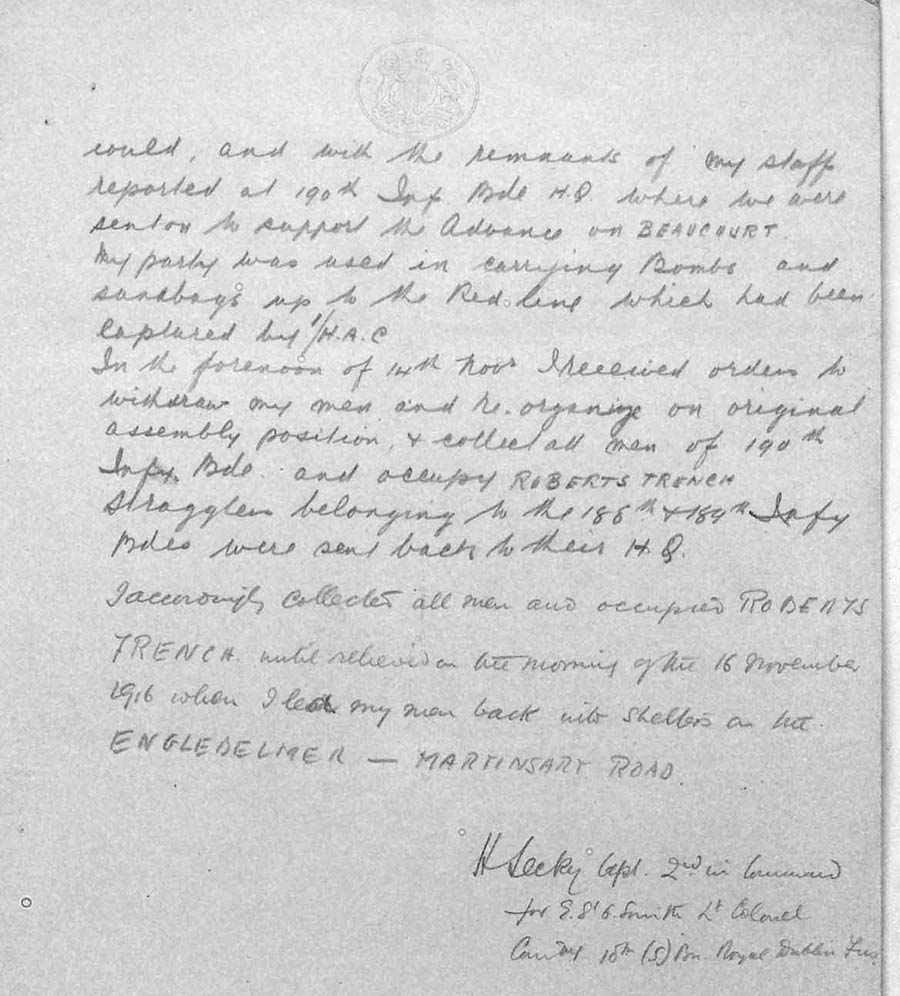 could, and with the remnants of my staff
reported at 190th Inf Bde H.Q. where we were
sent on to support the Advance on BEAUCOURT.
My party was used in carrying Bombs and
sandbags up to the Red line which had been
captured by 1/H.A.C
In the forenoon of 14th Novr I received orders to
withdraw my men and re.organize on original
assembly position, & collect all men of 190th
Infy. Bde. and occupy ROBERTS TRENCH
Stragglers belonging to the 188th & 189th Infy
Bdes were sent back to their H.Q.
I accordingly collected all men and occupied ROBERTS
TRENCH. until relieved on the morning of the 16 November
1916 when I led my men back into Shelters on the
ENGLEBELMER — MARTINSART ROAD.
H Lecky Capt. 2nd in Command
for E. St G. Smith Lt Colonel
Comdg 10th (S) Bn. Royal Dublin Fus.